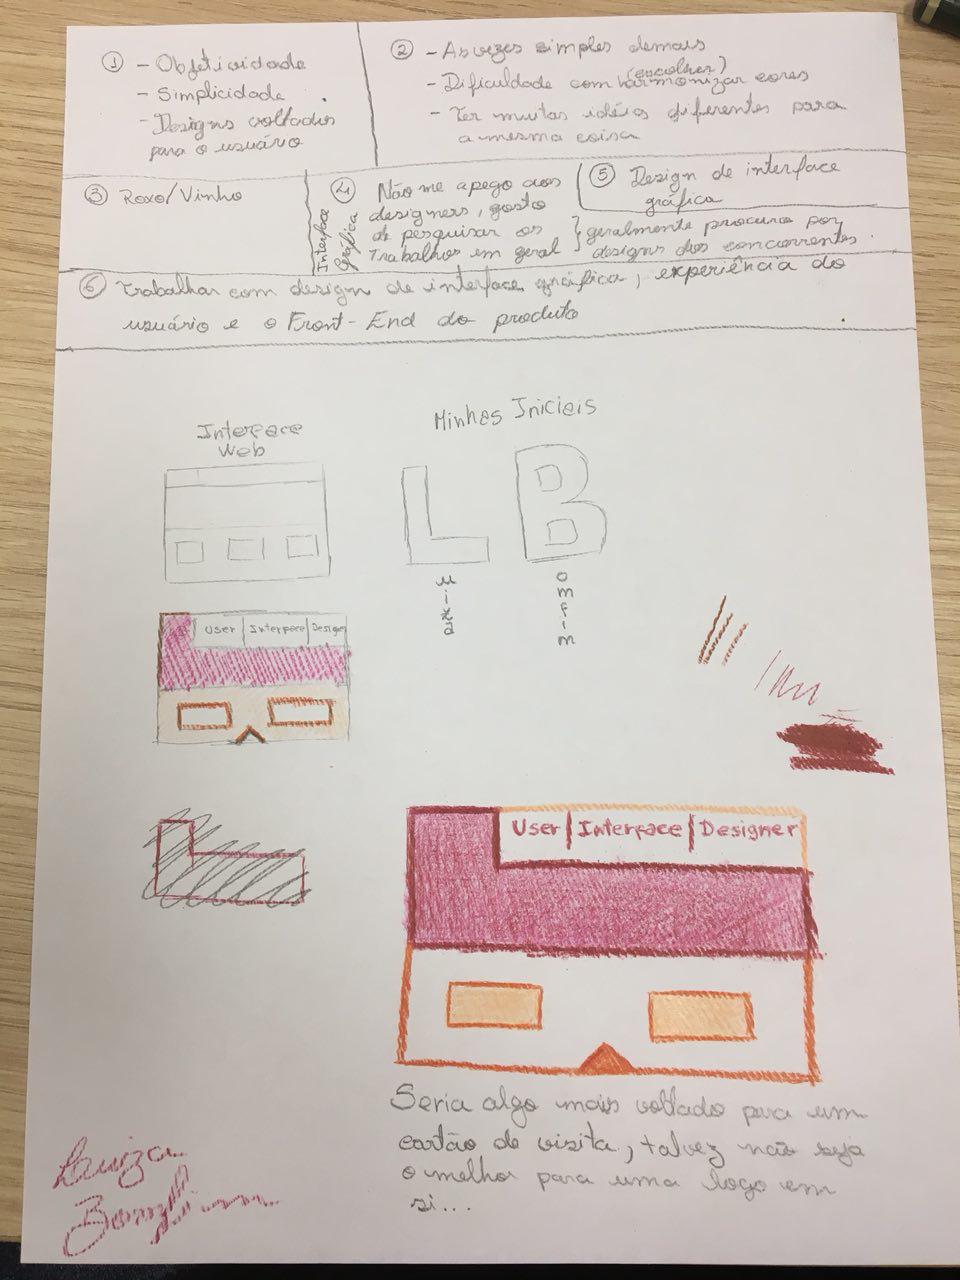 ① - Objetividade
- Simplicidade
- Designs voltados
para o usuário
② - As vezes simples demais
- Dificuldade com (escolher) harmonizar cores
- Ter muitas idéias diferentes para
a mesma coisa
③ Roxo/Vinho
Interface
Gráfica
④ Não me apego aos
designers, gosto
de pesquisar os
trabalhos em geral
⑤ Design de interface
gráfica
geralmente procuro por
designs dos concorrentes.
⑥ Trabalhar com design de interface gráfica, experiência do
usuário e o Front-End do produto
Interface
Web
Minhas Iniciais
L B
uiza
omfim
User Interface Designer
User Interface Designer
Seria algo mais voltado para um
cartão de visita, talvez não seja
o melhor para uma logo em
si...
Luiza
Bomfim